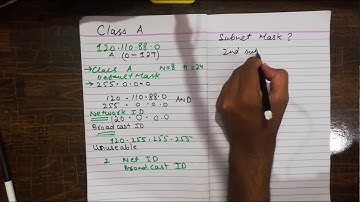 Class A
120.110.88.0
A (0-127)
→ Class A N=8 H=24
Default Mask
→ 255.0.0.0
120.110.88.0
255.0.0.0 AND
Network ID
120.0.0.0
Broadcast ID
120.255.255.255
Unuseable
2 Net ID
Broadcast ID
Subnet Mask?
2nd